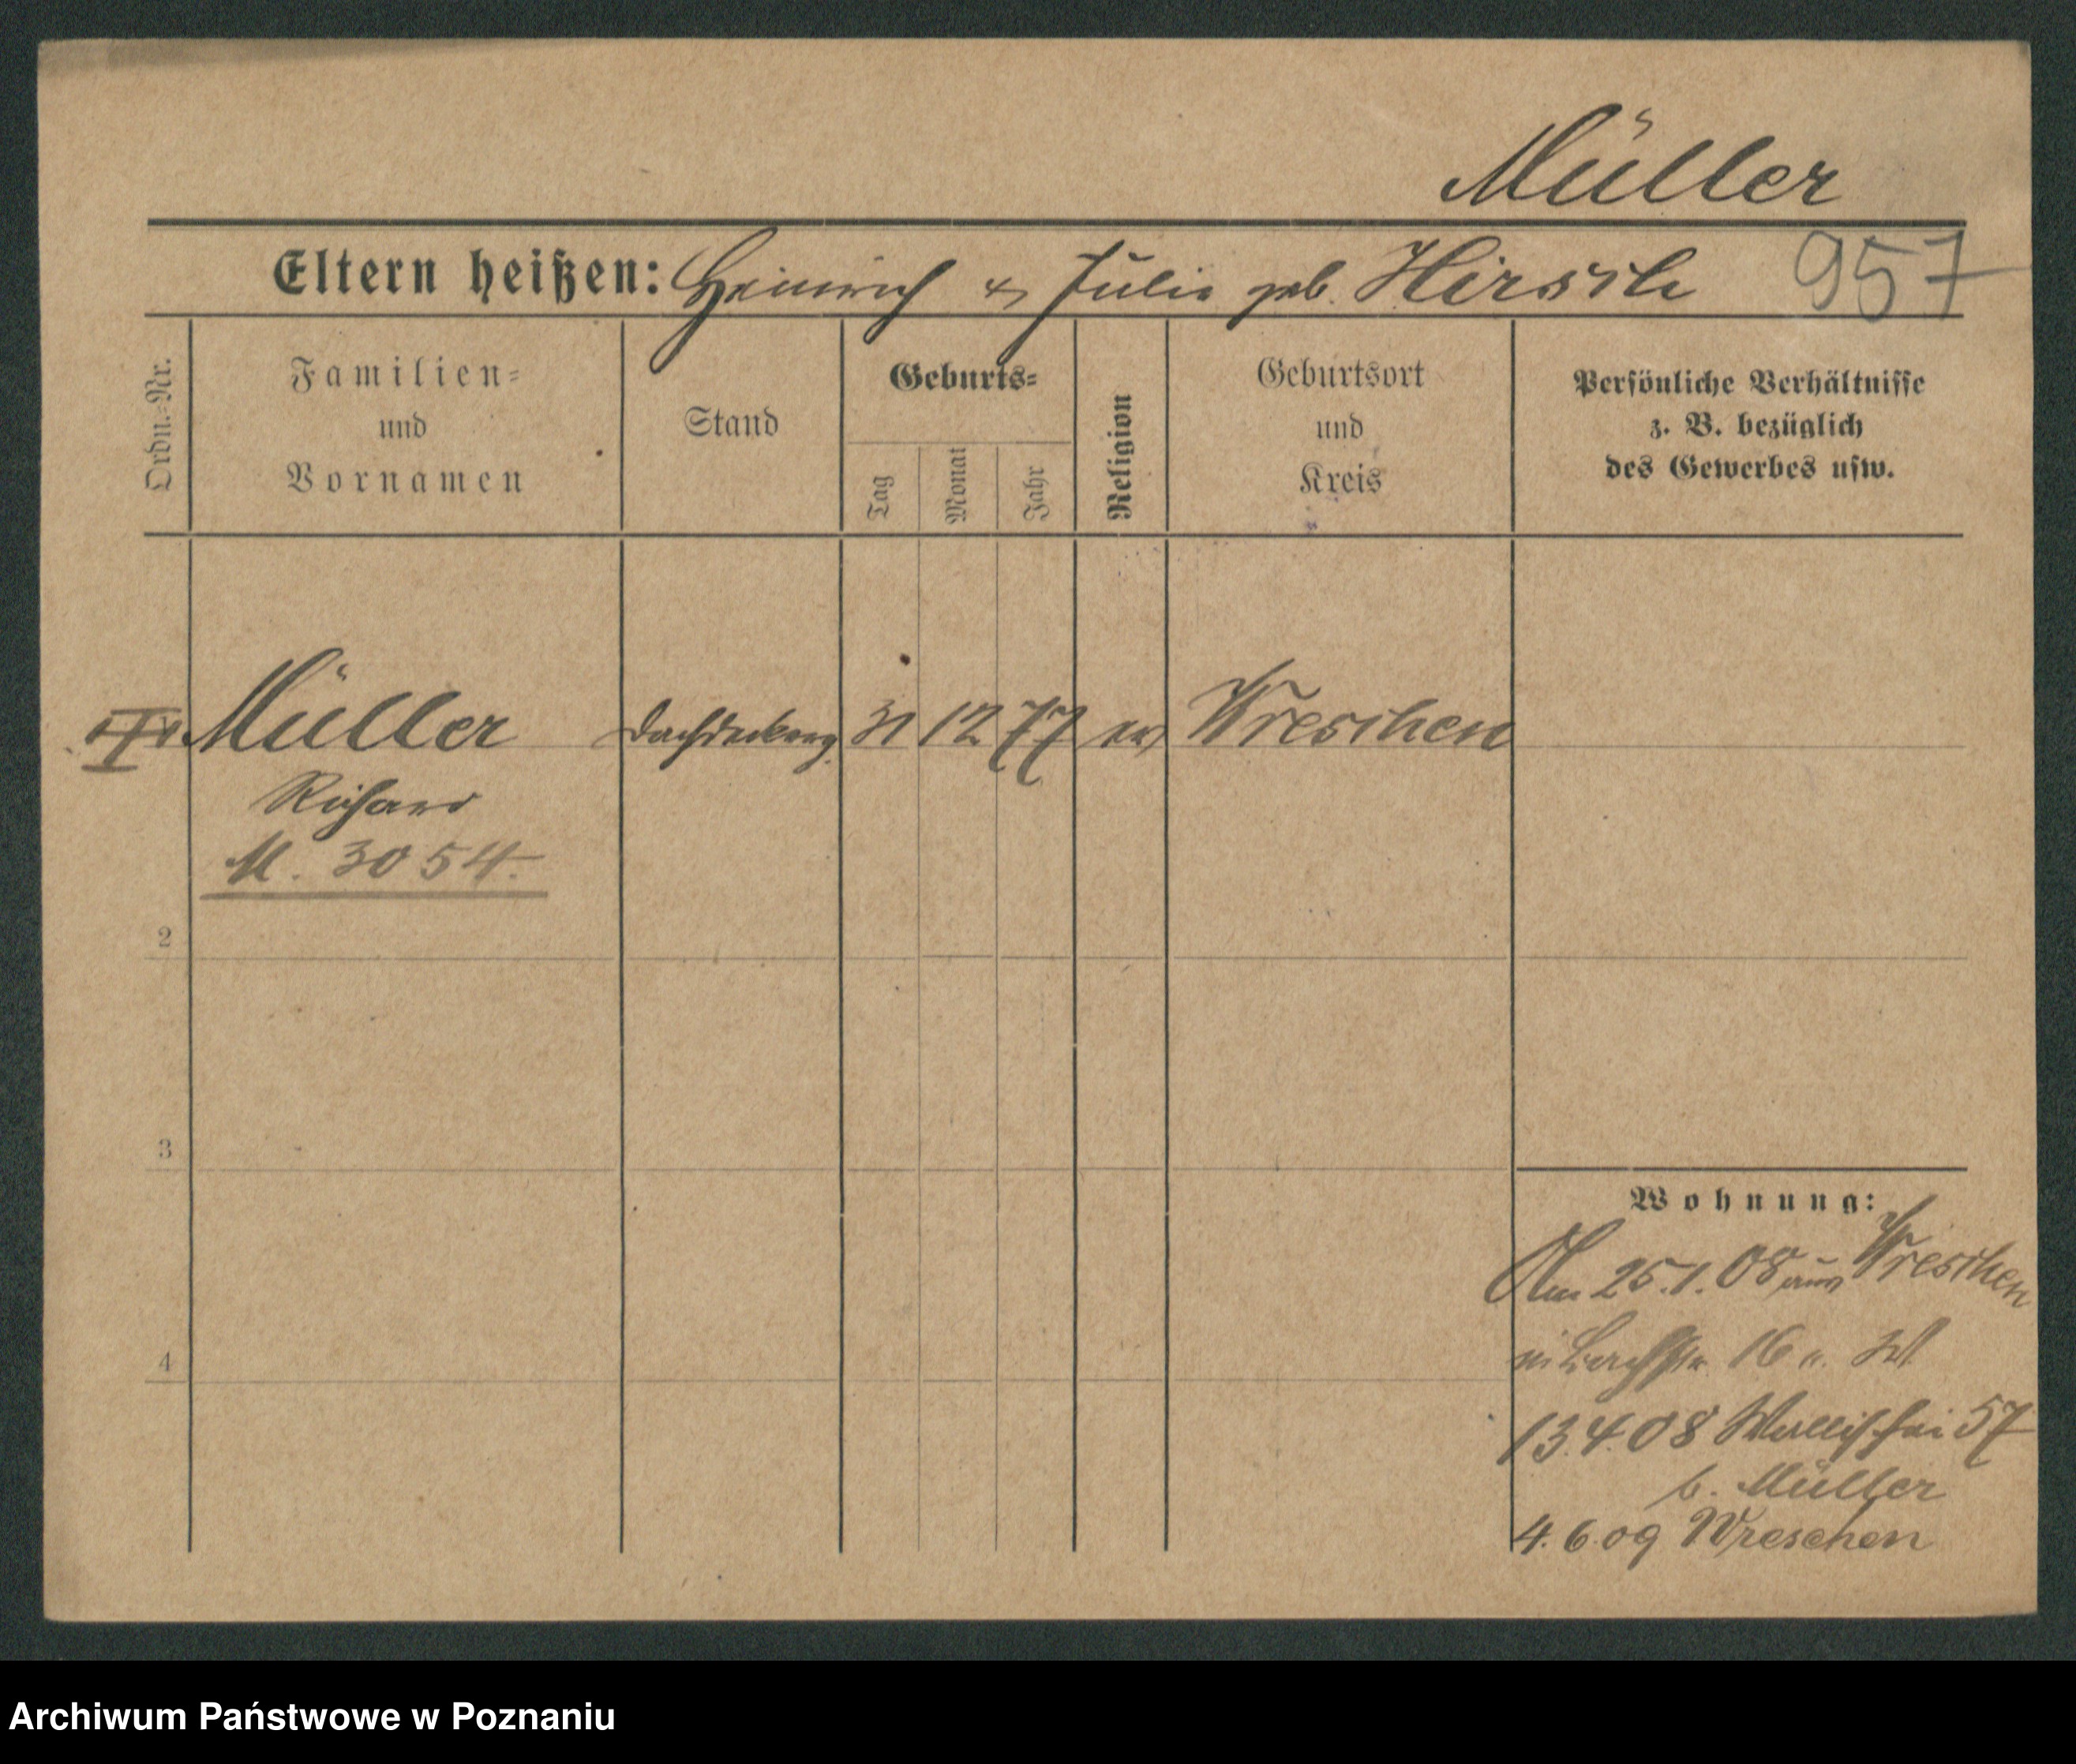 Müller
Eltern heißen: Heinrich & Julie geb. Hirsch 957
Ordn.-Nr.
Familien-
und
Vornamen
Stand
Geburts-
Tag
Monat
Jahr
Religion
Geburtsort
und
Kreis
Persönliche Verhältnisse
z. B. bezüglich
des Gewerbes usw.
Müller Dachdecker 31 12 77 ev Wreschen
Richard
M. 3054.
2
3
4
Wohnung:
Am 25.1.08 aus Wreschen
in 16
13.4.08 Wallischei 57
b. Müller
4.6.09 Wreschen
Archiwum Państwowe w Poznaniu